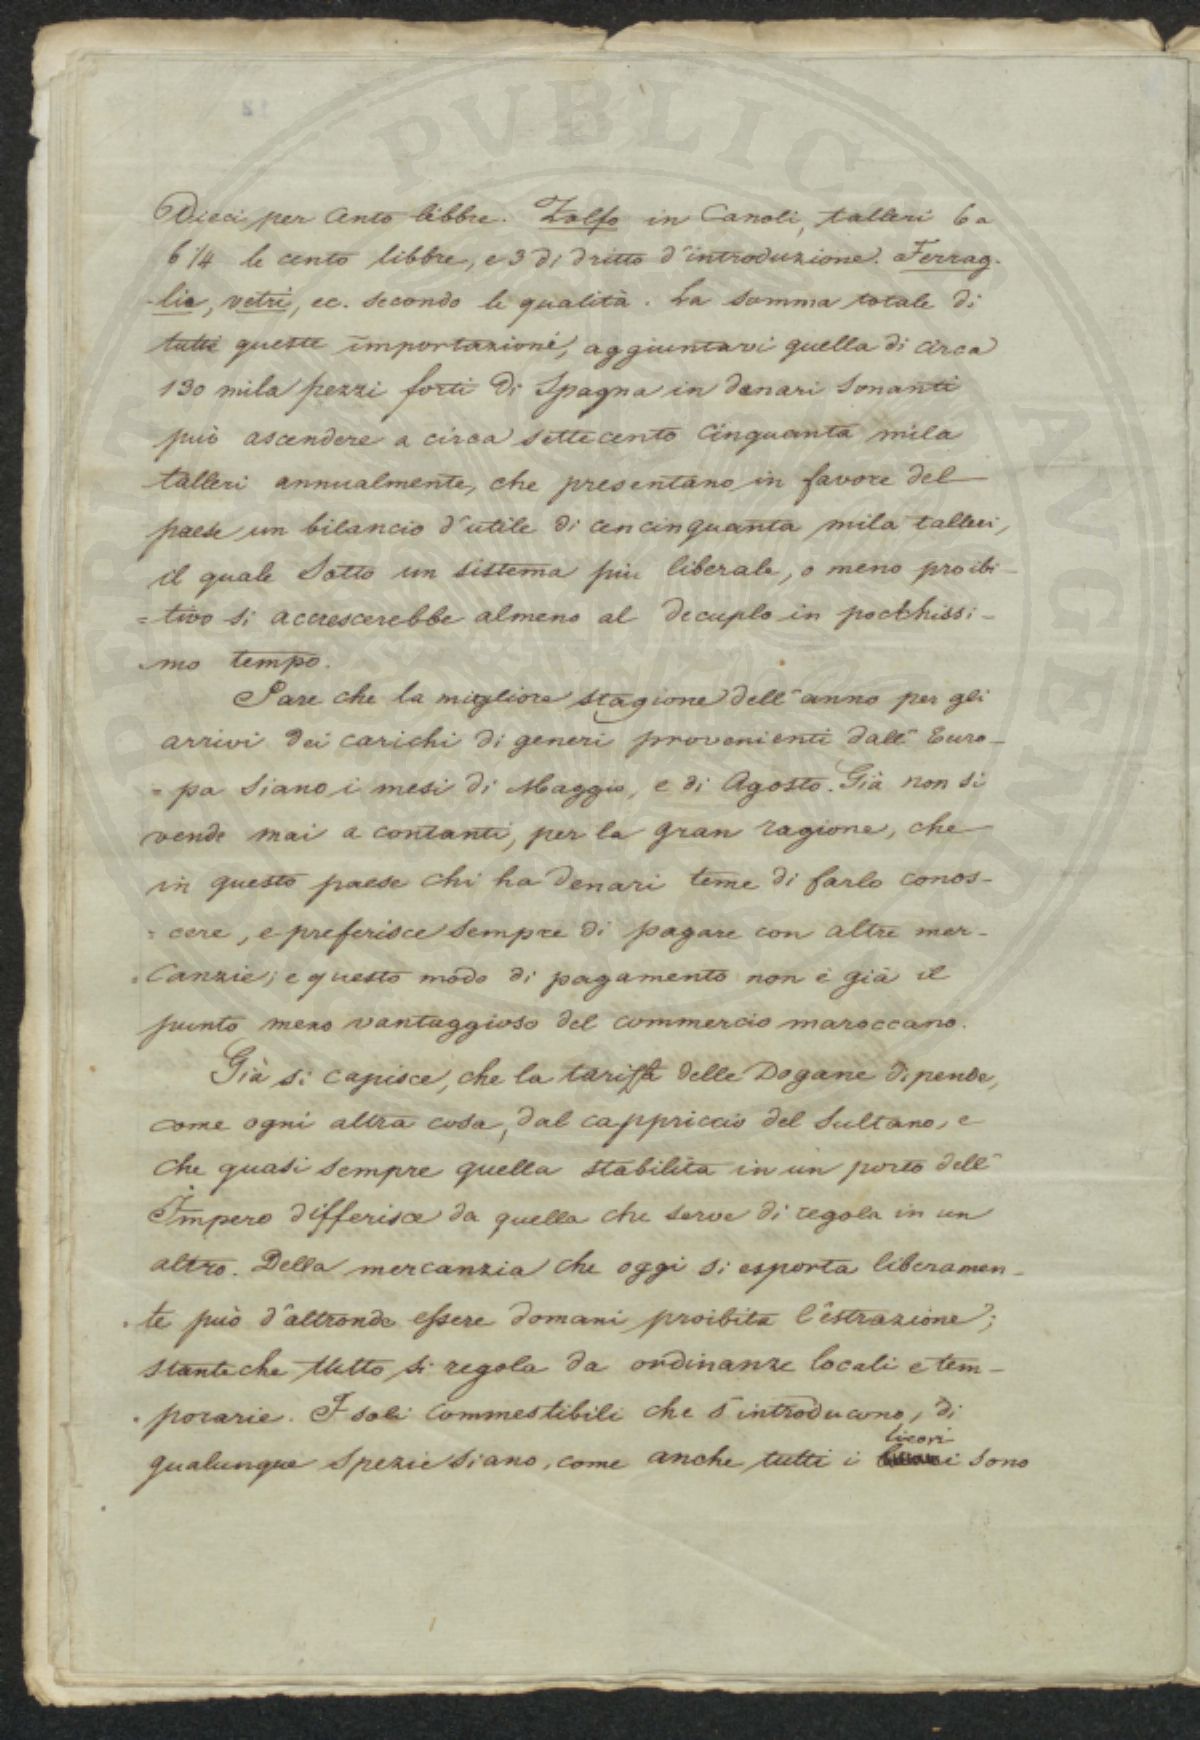 Dieci per Cento libbre. Zolfo in Canoli, talleri 6 a
6 1/4 le cento libbre, e 3 di dritto d'introduzione. Ferrag-
-lie, vetri, ec. secondo le qualità. La somma totale di
tutte queste importazioni, aggiuntavi quella di circa
130 mila pezzi forti di Spagna in denari sonanti
può ascendere a circa settecento cinquanta mila
talleri annualmente, che presentano in favore del
paese un bilancio d'utile di cencinquanta mila talleri,
il quale sotto un sistema piu liberale, o meno proibi-
=tivo si accrescerebbe almeno al decuplo in pochissi-
-mo tempo.
Pare che la migliore stagione dell'anno per gli
arrivi dei carichi di generi provenienti dall'Euro-
=pa siano i mesi di Maggio, e di Agosto. Già non si
vende mai a contanti, per la gran ragione, che
in questo paese chi ha denari teme di farlo conos-
=cere, e preferisce sempre di pagare con altre mer-
-canzie; e questo modo di pagamento non è già il
punto meno vantaggioso del commercio maroccano.
Già si capisce, che la tariffa delle Dogane dipende,
come ogni altra cosa, dal cappriccio del Sultano, e
che quasi sempre quella stabilita in un porto dell'
Impero differisce da quella che serve di regola in un
altro. Della mercanzia che oggi si esporta liberamen-
-te può d'altronde essere domani proibita l'estrazione;
stanteche tutto si regola da ordinanze locali e tem-
-porarie. I soli commestibili che s'introducono, di
qualunque spezie siano, come anche tutti i licori sono
PVBLIC